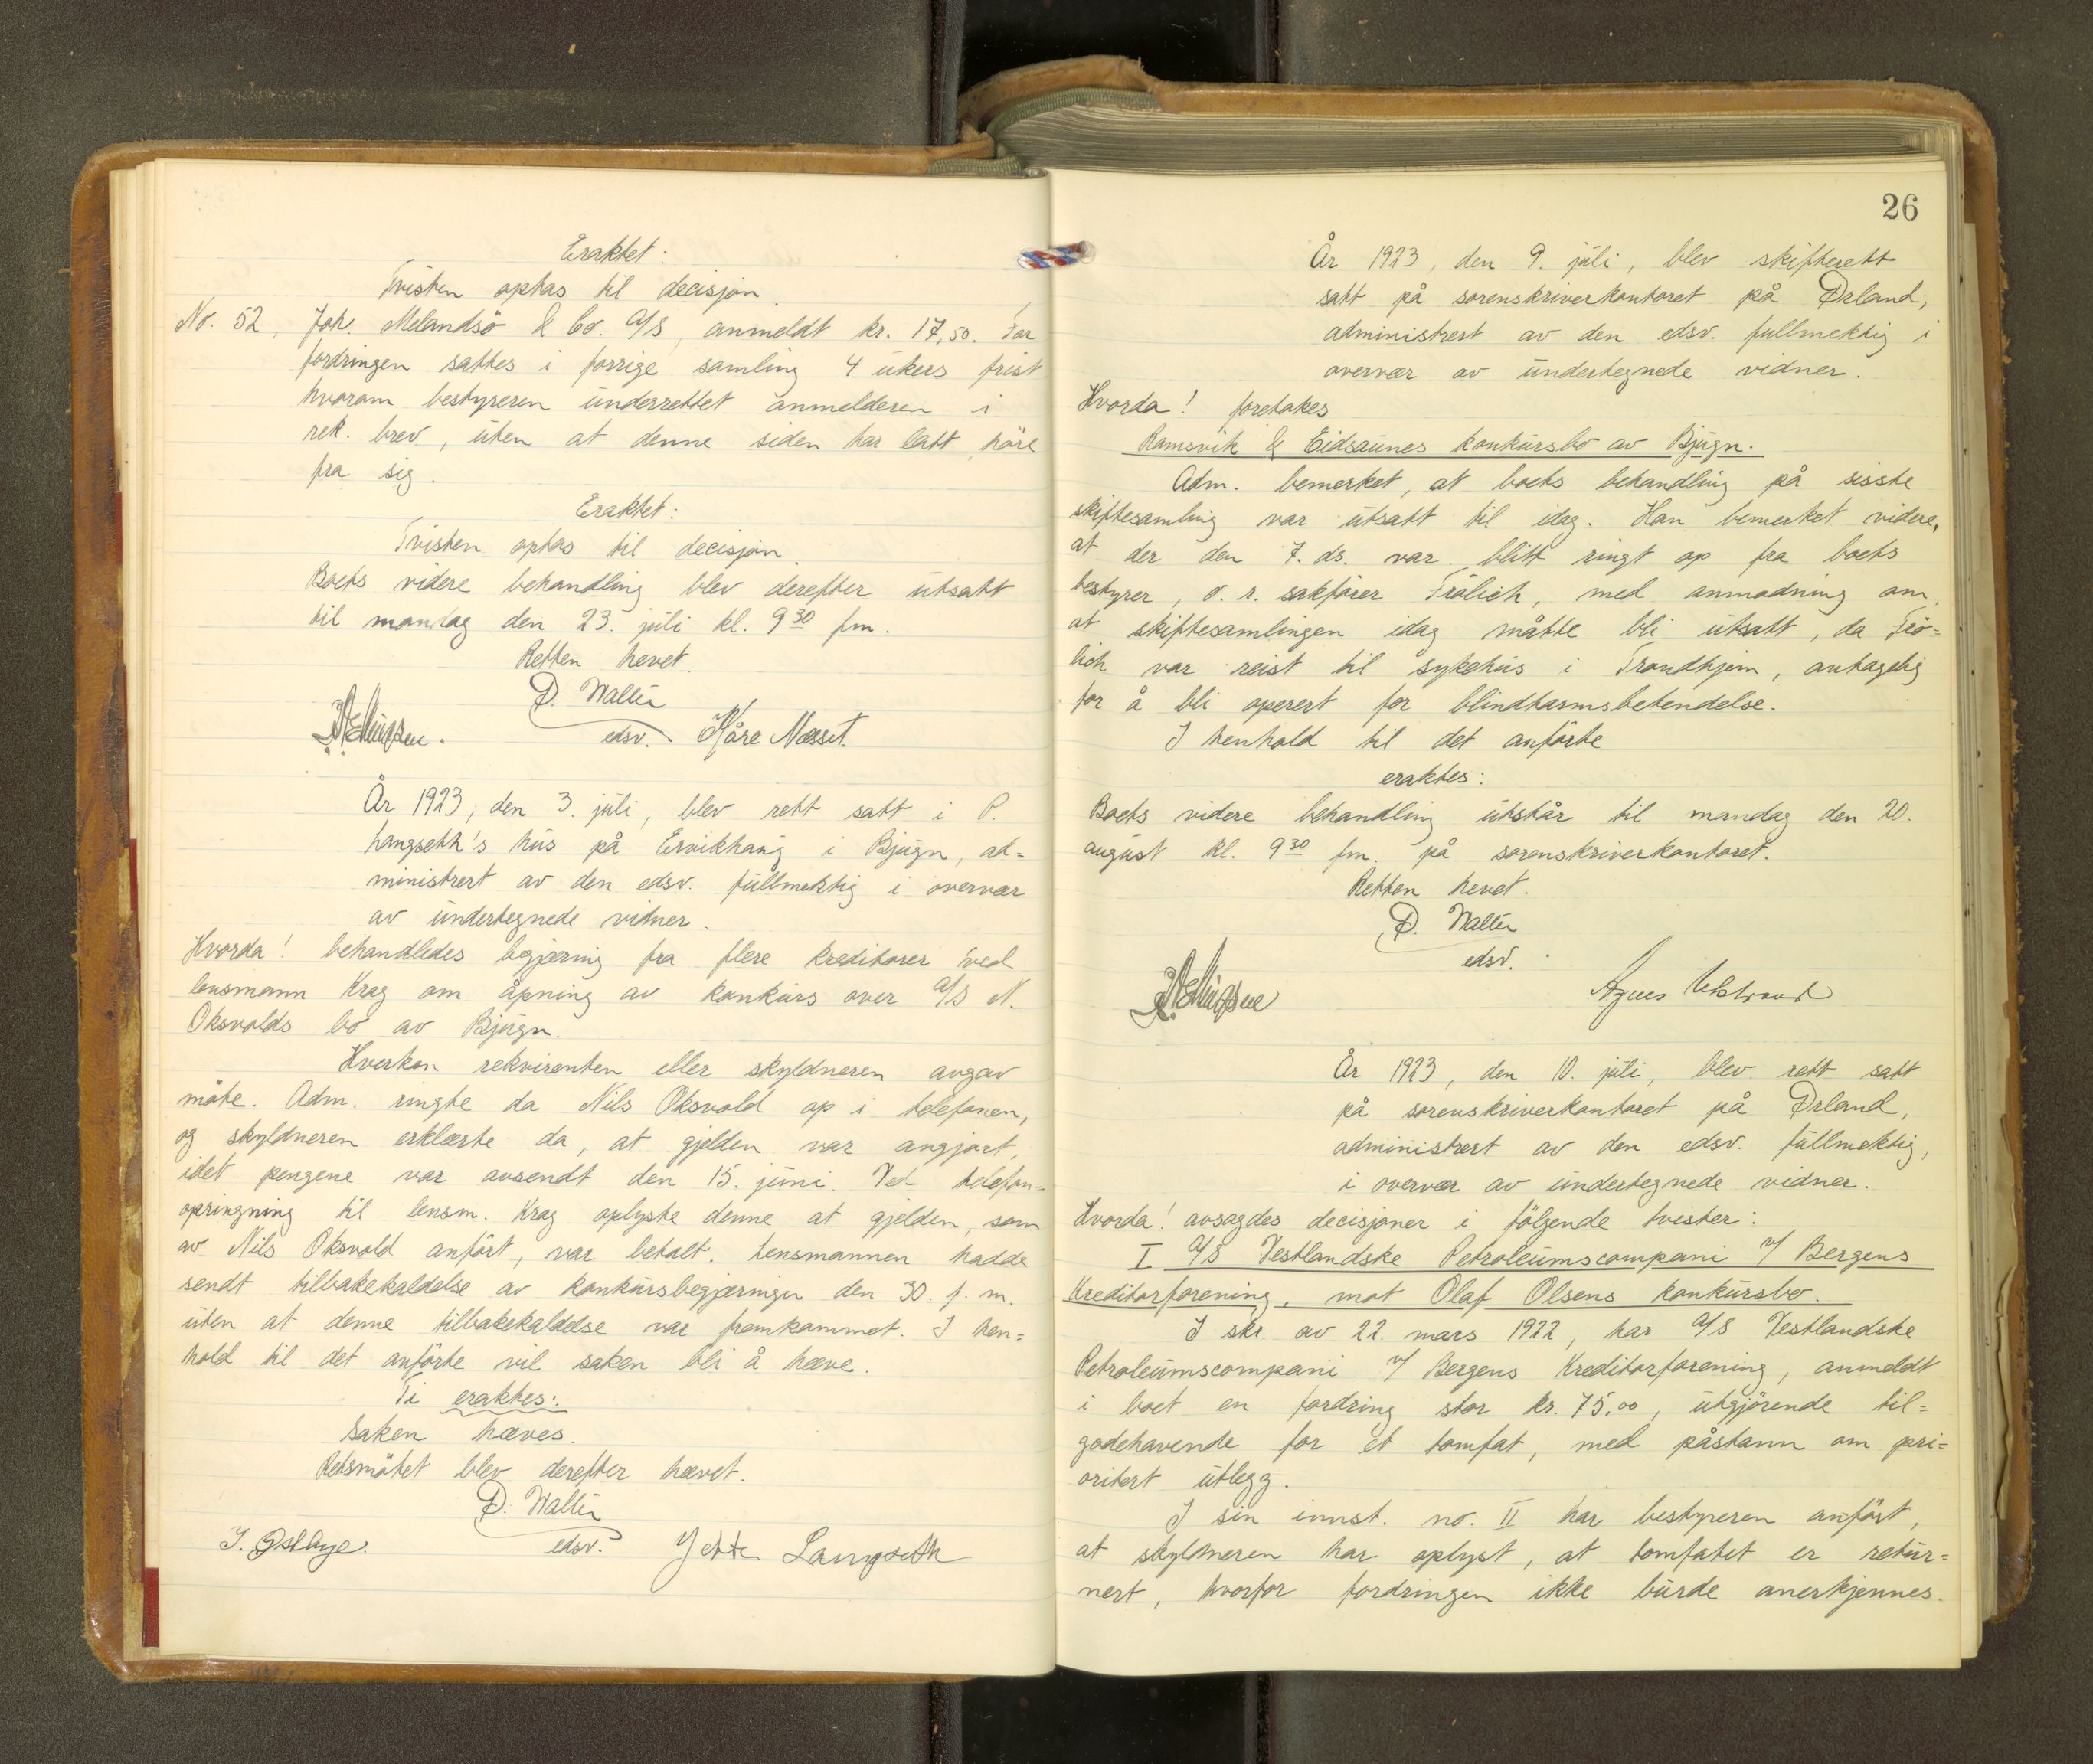 Eraktet:
Tvisten optas til decisjon.
No. 52, Joh. Melandsö & Co. A/S, anmeldt kr. 17,50. For
fordringen sattes i forrige samling 4 ukers frist
hvorom bestyreren underrettet anmelderen i
rek. brev, uten at denne siden har latt höre
fra sig.
Eraktet:
Tvisten optas til decisjon.
Boets videre behandling blev derefter utsatt
til mandag den 23. juli kl. 9 30 fm.
Retten hevet.
D. Walter
edsv. Kåre Næsset.
År 1923, den 3. juli, blev rett satt i P.
Langseth's hus på Ervikhaug i Bjugn, ad=
ministrert av den edsv. fullmektig i overvær
av undertegnede vidner.
Hvorda! behandledes begjæring fra flere kreditorer ved
lensmann Krag om åpning av konkurs over A/S N.
Oksvolds bo av Bjugn.
Hverken rekvirenten eller skyldneren avgav
möte. Adm. ringte da Nils Oksvold op i telefonen,
og skyldneren erklærte da, at gjelden var opgjort,
idet pengene var avsendt den 15. juni. Ved telefon=
opringning til lensm. Krag oplyste denne at gjelden, som
av Nils Oksvold anfört, var betalt. Lensmannen hadde
sendt tilbakekaldelse av konkursbegjæringen den 30. f. m.
uten at denne tilbakekaldelse var fremkommet. I hen=
hold til det anförte vil saken bli å hæve.
Ti eraktes:
Saken hæves.
Retsmötet blev derefter hævet.
D. Walter
edsv. Jette Langseth
26
År 1923, den 9. juli, blev skifterett
satt på sorenskriverkontoret på Ørland,
administrert av den edsv. fullmektig i
overvær av undertegnede vidner.
Hvorda! foretokes
Ramsvik & Eidsaunes konkursbo av Bjugn.
Adm. bemerket, at boets behandling på sisste
skiftesamling var utsatt til idag. Han bemerket videre,
at der den 7. ds. var blitt ringt op fra boets
bestyrer, o. r. sakförer Frölich, med anmodning om,
at skiftesamlingen idag måtte bli utsatt, da Frö=
lich var reist til sykehus i Trondhjem, antagelig
for å bli operert for blindtarmsbetendelse.
I henhold til det anförte
eraktes:
Boets videre behandling utstår til mandag den 20.
august kl. 9 30 fm. på sorenskriverkontoret.
Retten hevet.
D. Walter
edsv.
Agnes
År 1923, den 10. juli, blev rett satt
på sorenskriverkontoret på Ørland,
administrert av den edsv. fullmektig,
i overvær av undertegnede vidner.
Hvorda! avsagdes decisjoner i fölgende tvister:
I A/S Vestlandske Petroleumscompani v/ Bergens
Kreditorforening, mot Olaf Olsens konkursbo.
I skr. av 22. mars 1922, har A/S Vestlandske
Petroleumscompani v/ Bergens Kreditorforening, anmeldt
i boet en fordring stor kr. 75,00, utgjörende til=
godehavende for et tomfat, med påstann om pri=
oritert utlegg.
I sin innst. no. II har bestyreren anfört,
at skyldneren har oplyst, at tomfatet er retur=
nert, hvorfor fordringen ikke burde anerkjennes.